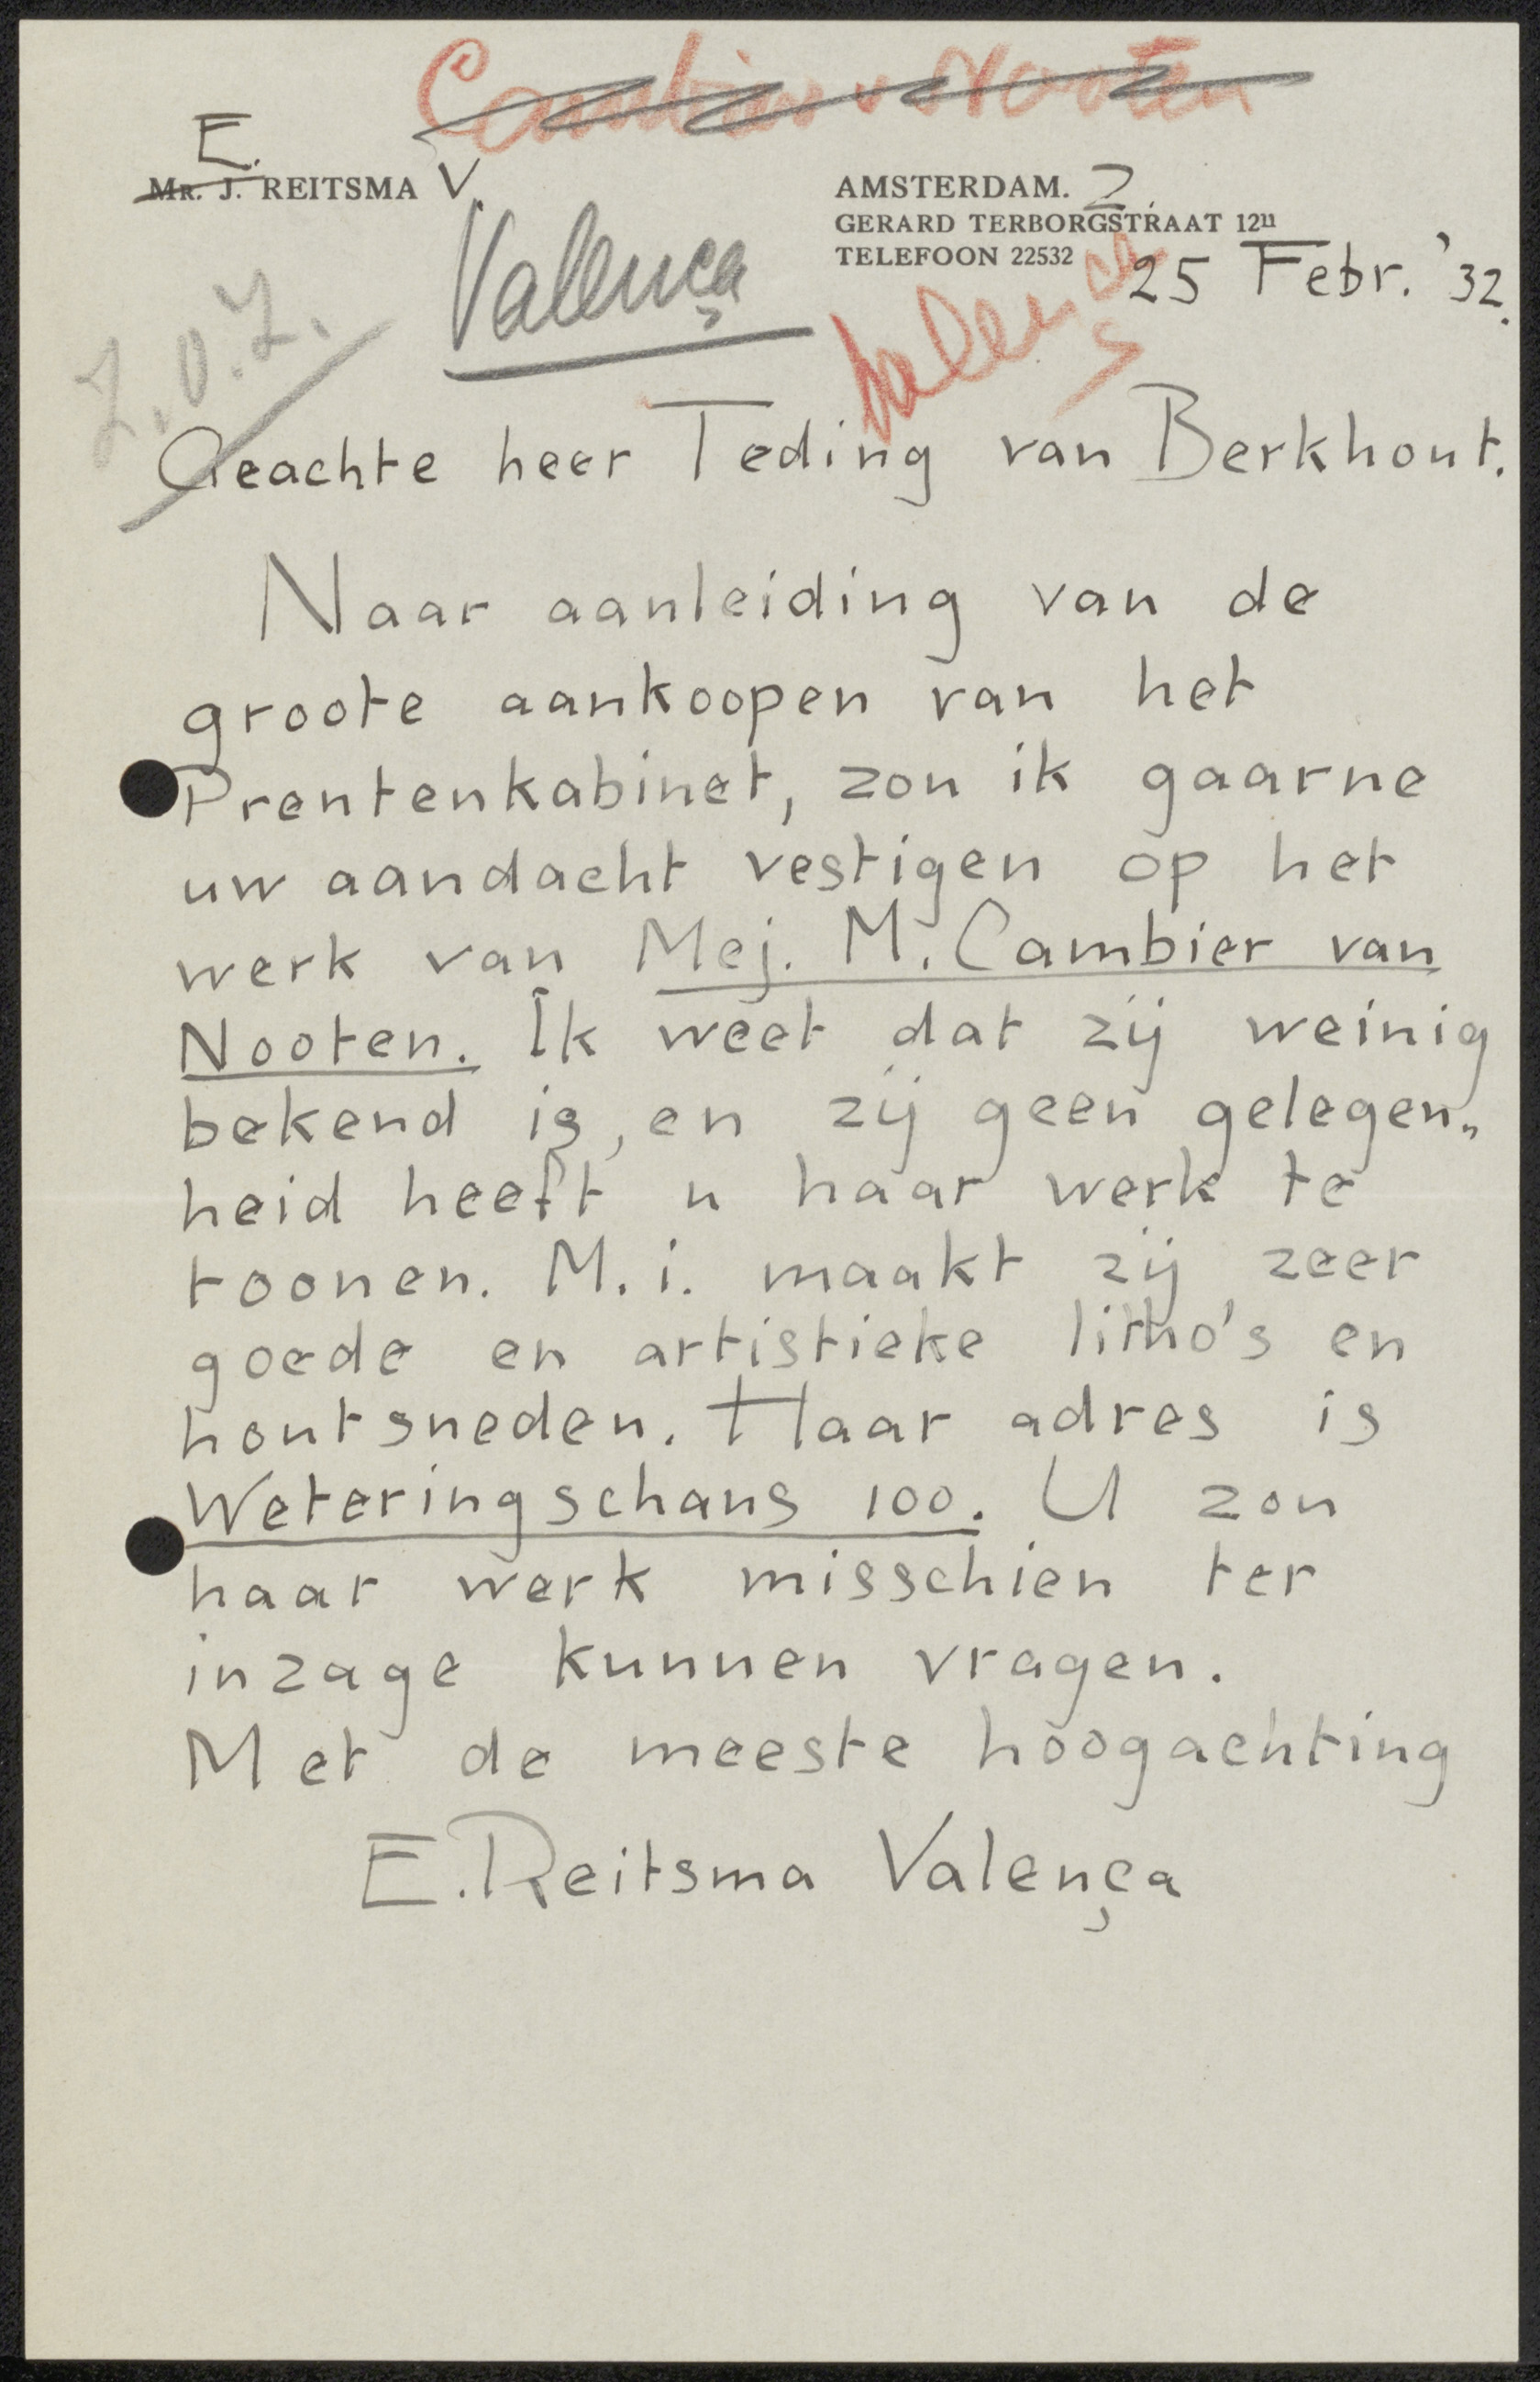 Cambier v Nooten
E.
MR. J. REITSMA V.
AMSTERDAM. Z.
GERARD TERBORGSTRAAT 12II
TELEFOON 22532
25 Febr. '32.
Valença
Valença
Geachte heer Teding van Berkhout.
Naar aanleiding van de
groote aankoopen van het
Prentenkabinet, zou ik gaarne
uw aandacht vestigen op het
werk van Mej. M. Cambier van
Nooten. Ik weet dat zij weinig
bekend is, en zij geen gelegen„
heid heeft u haar werk te
toonen. M. i. maakt zij zeer
goede en artistieke litho's en
houtsneden. Haar adres is
Weteringschans 100. U zou
haar werk misschien ter
inzage kunnen vragen.
Met de meeste hoogachting
E. Reitsma Valença